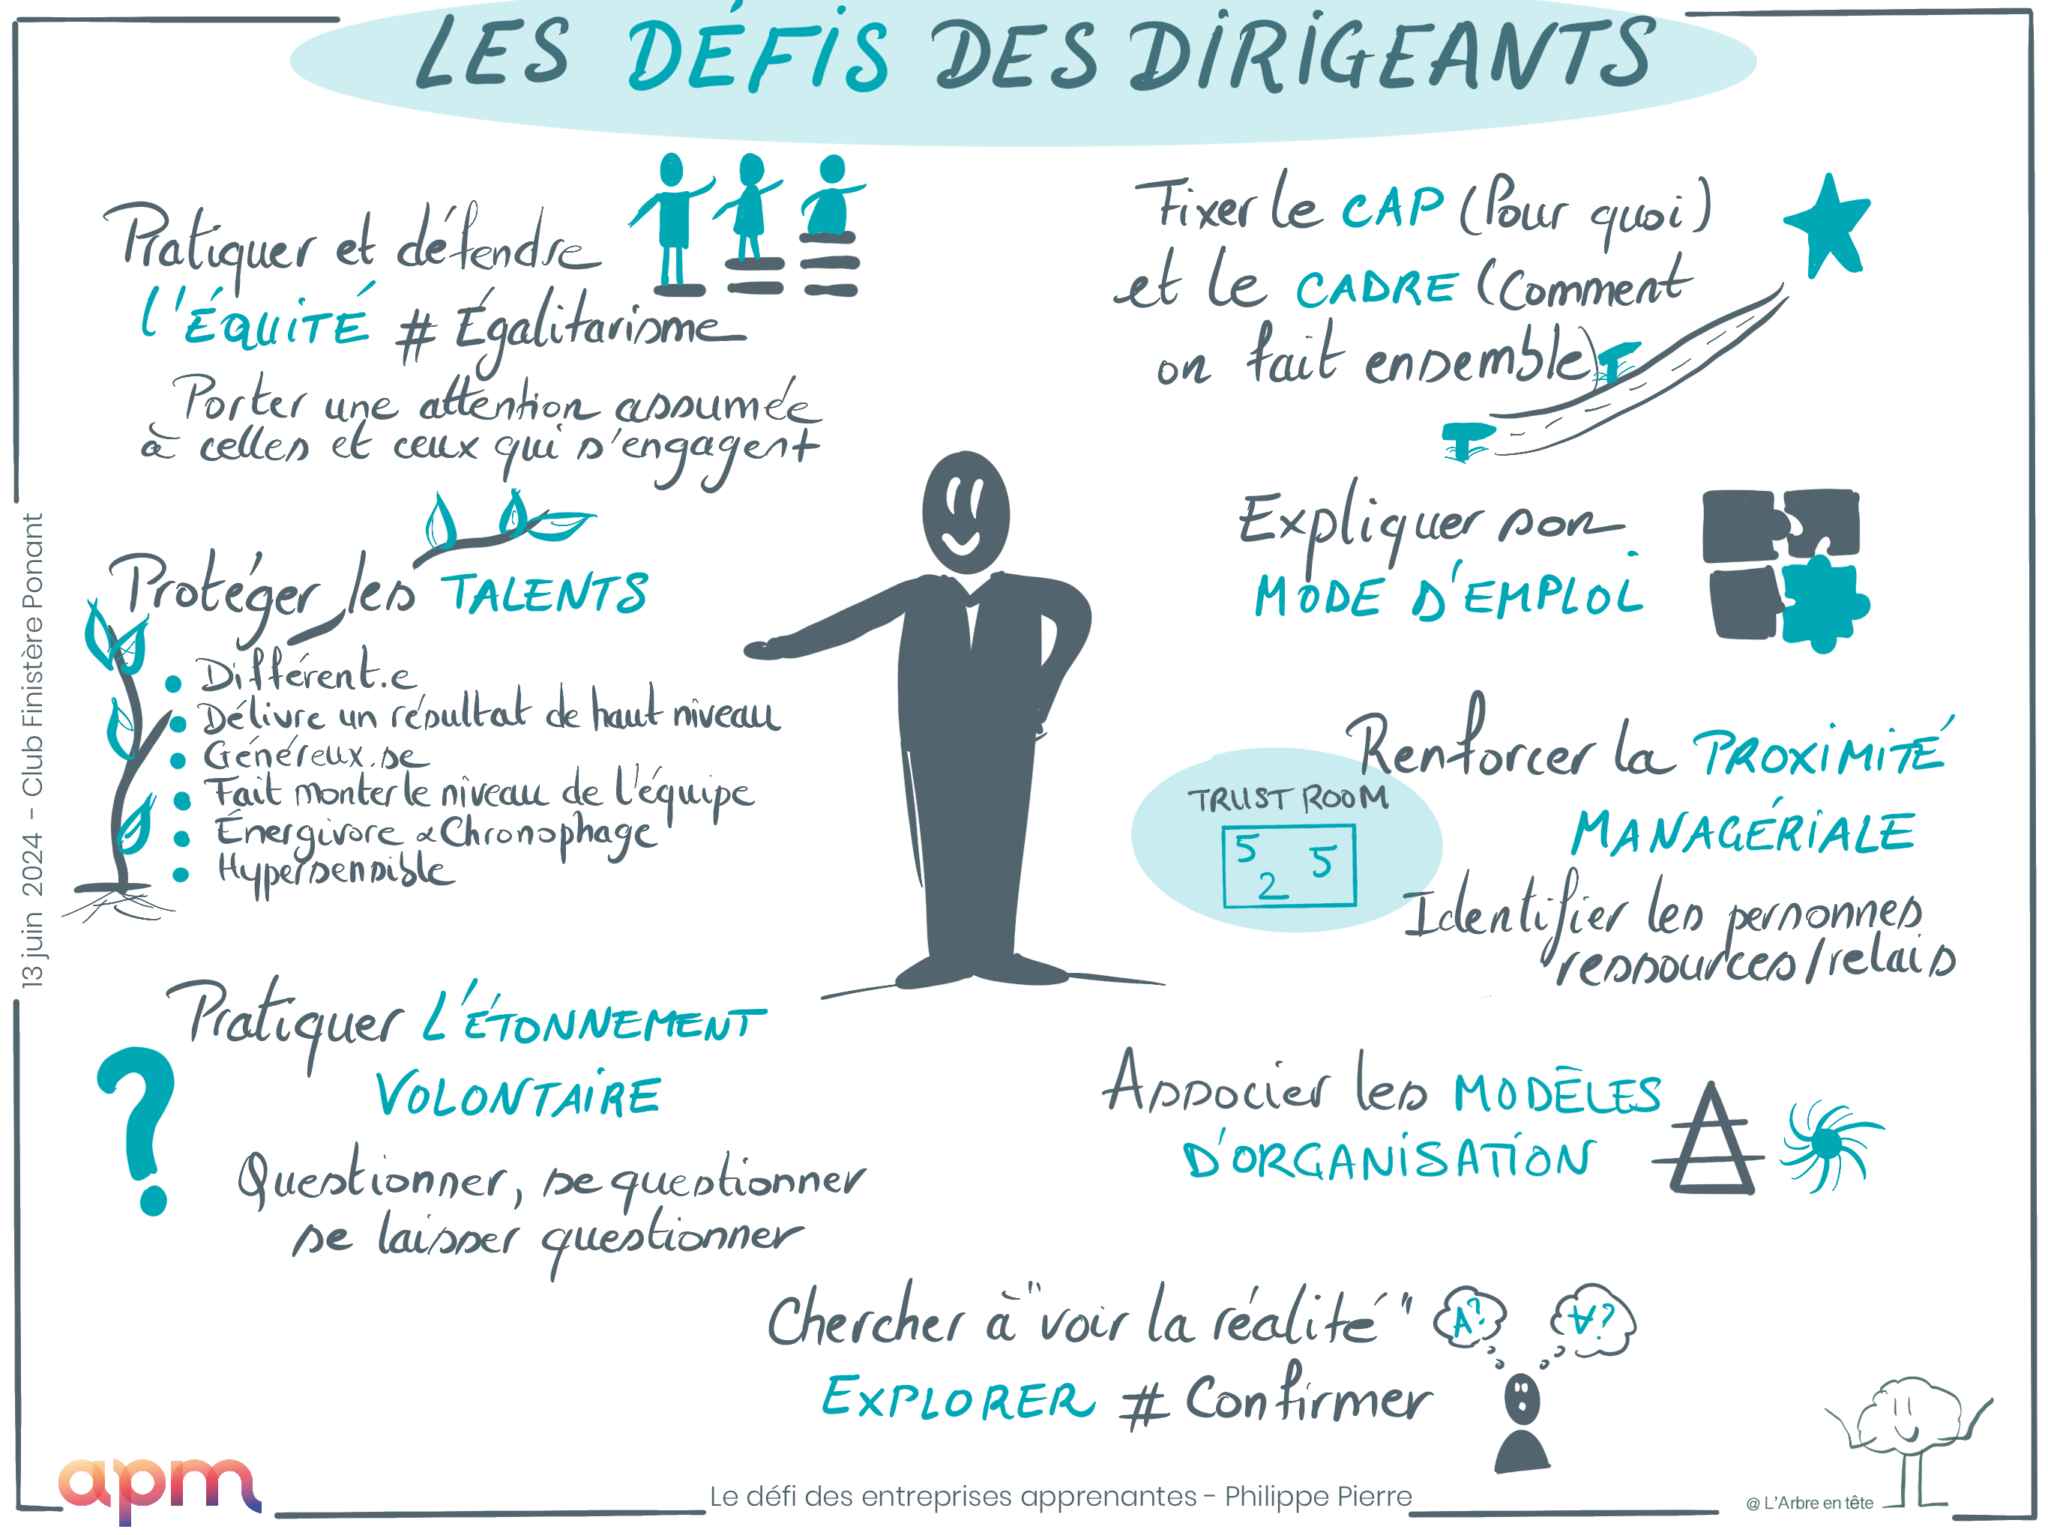 LES DÉFIS DES DIRIGEANTS
Pratiquer et défendre
l'ÉQUITÉ # Égalitarisme
Porter une attention assumée
à celles et ceux qui s'engagent
Protéger les TALENTS
Différent.e
Délivre un résultat de haut niveau
Généreux.se
Fait monter le niveau de l'équipe
Énergivore & Chronophage
Hypersensible
Pratiquer L'ÉTONNEMENT
VOLONTAIRE
?
Questionner, se questionner
se laisser questionner
Fixer le CAP (Pour quoi)
et le CADRE (Comment
on fait ensemble)
Expliquer son
MODE D'EMPLOI
Renforcer la PROXIMITÉ
MANAGÉRIALE
TRUST ROOM
5 5
2
Identifier les personnes
ressources/relais
Associer les MODÈLES
D'ORGANISATION
Chercher à "voir la réalité"
A? ∀?
EXPLORER # Confirmer
13 juin 2024 - Club Finistère Ponant
apm
Le défi des entreprises apprenantes - Philippe Pierre
@ L'Arbre en tête